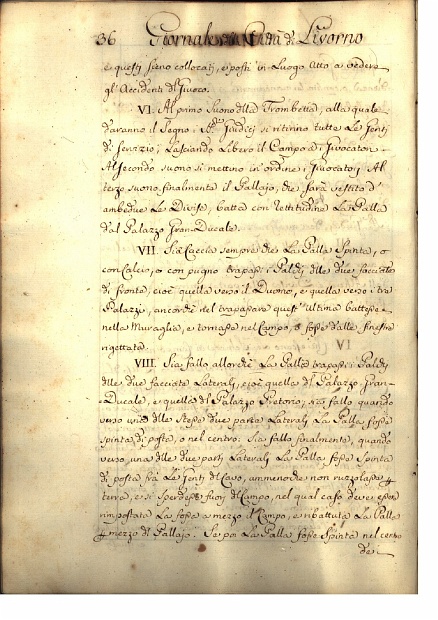 36 Giornale della Città di Livorno
e questi sieno collocati, e posti in Luogo atto a vedere
gl'Accidenti del Giuoco.
VI. Al primo Suono della Trombetta, alla quale
daranno il Segno i Giudici si ritirino tutte Le Genti
di servizio; Lasciando Libero il Campo a i Giuocatori.
Al secondo suono si mettino in ordine i Giuocatori; Al
terzo suono finalmente il Pallajo, che sarà vestito d'
ambedue Le Divise, batta con rettitudine La Palla
dal Palazzo Gran-Ducale.
VII. Sia Caccia sempre che La Palla spinta, o
con Calcio, o con pugno trapassi i Paldi delle due facciate
di fronte, cioè quella verso il Duomo, e quella verso i tre
Palazzi, ancorchè nel trapassare quest'ultima battesse
nella Muraglia, e tornasse nel Campo, o fosse dalle finestre
rigettata.
VIII. Sia fallo allorchè La Palla trapassi i Paldi
delle due facciate Laterali, cioè quella del Palazzo Gran-
Ducale, e quella del Palazzo Pretorio; sia fallo quando
verso una delle Stesse due parti Laterali La Palla fosse
spinta di posta, o nel centro. Sia fallo finalmente, quando
verso una delle due parti Laterali La Palla fosse spinta
di posta frà Le Genti del Cavo, ammenochè non ruzzolasse p
terra, e si sperdesse fuori del Campo, nel qual caso deve esser
rimpostata La fossa a mezzo il Campo, e ribattuta La Palla
p mezzo del Pallajo. Se poi La Palla fosse spinta nel centro
de